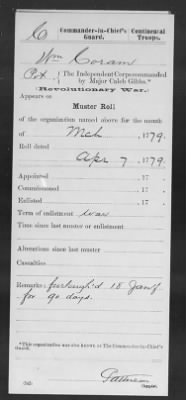 C
Commander-in-Chief's Guard. Continental Troops.
Wm Coram
Pvt. The Independent Corps commanded by Major Caleb Gibbs.*
Revolutionary War.
Appears on
Muster Roll
of the organization named above for the month
of Mch, 1779.
Roll dated
Apr 7, 1779.
Appointed 17
Commissioned 17
Enlisted 17
Term of enlistment war
Time since last muster or enlistment
Alterations since last muster
Casualties
Remarks: furlough'd 18 Jany
for 90 days.
*This organization was also known as The Commander-in-Chief's Guard.
Copyist.